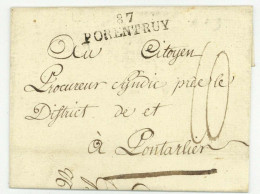 87
PORENTRUY
Au Citoyen
Procureur Sindic près le
District de et
à Pontarlier
10